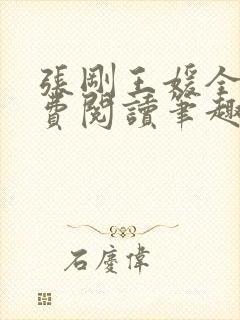 張剛王媛全
費閱讀筆趣
石慶偉